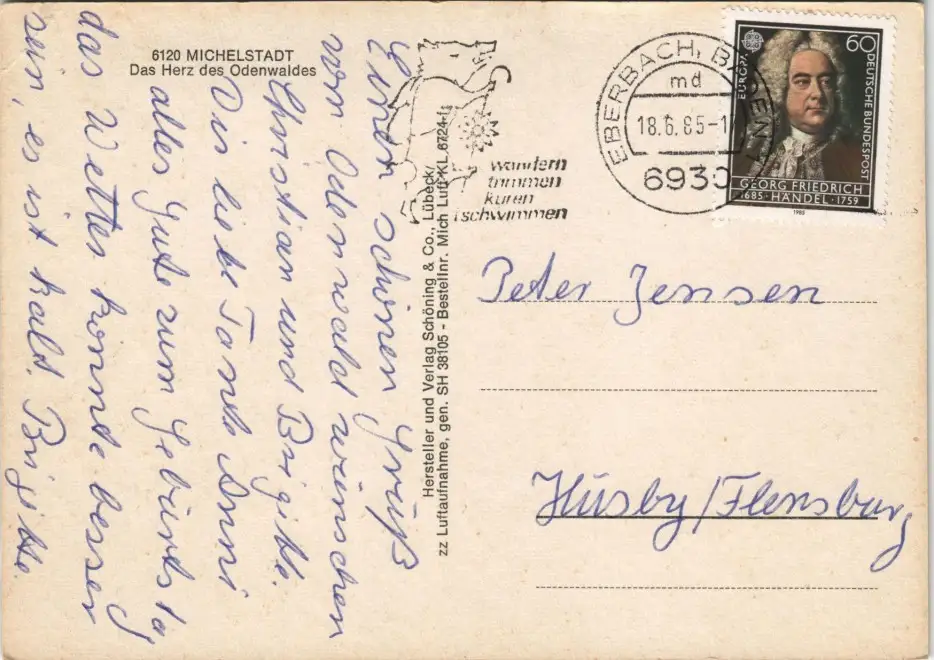 6120 MICHELSTADT
Das Herz des Odenwaldes
Einen schönen Gruß
vom Odenwald wünschen
Christian und Brigitte.
Dir liebe Tante Anni
alles Gute zum Geburtstag
das Wetter könnte besser
sein, es ist kalt. Brigitte.
Hersteller und Verlag Schöning & Co., Lübeck
zz Luftaufnahme, gen. SH 38105 - Bestellnr. Mich Luft KL 6724
wandern
trimmen
kuren
schwimmen
EBERBACH, BADEN 1
md
18.6.85-1
6930
EUROPA
60
DEUTSCHE BUNDESPOST
GEORG FRIEDRICH
1685 · HÄNDEL · 1759
1985
Peter Jensen
Husby/Flensburg